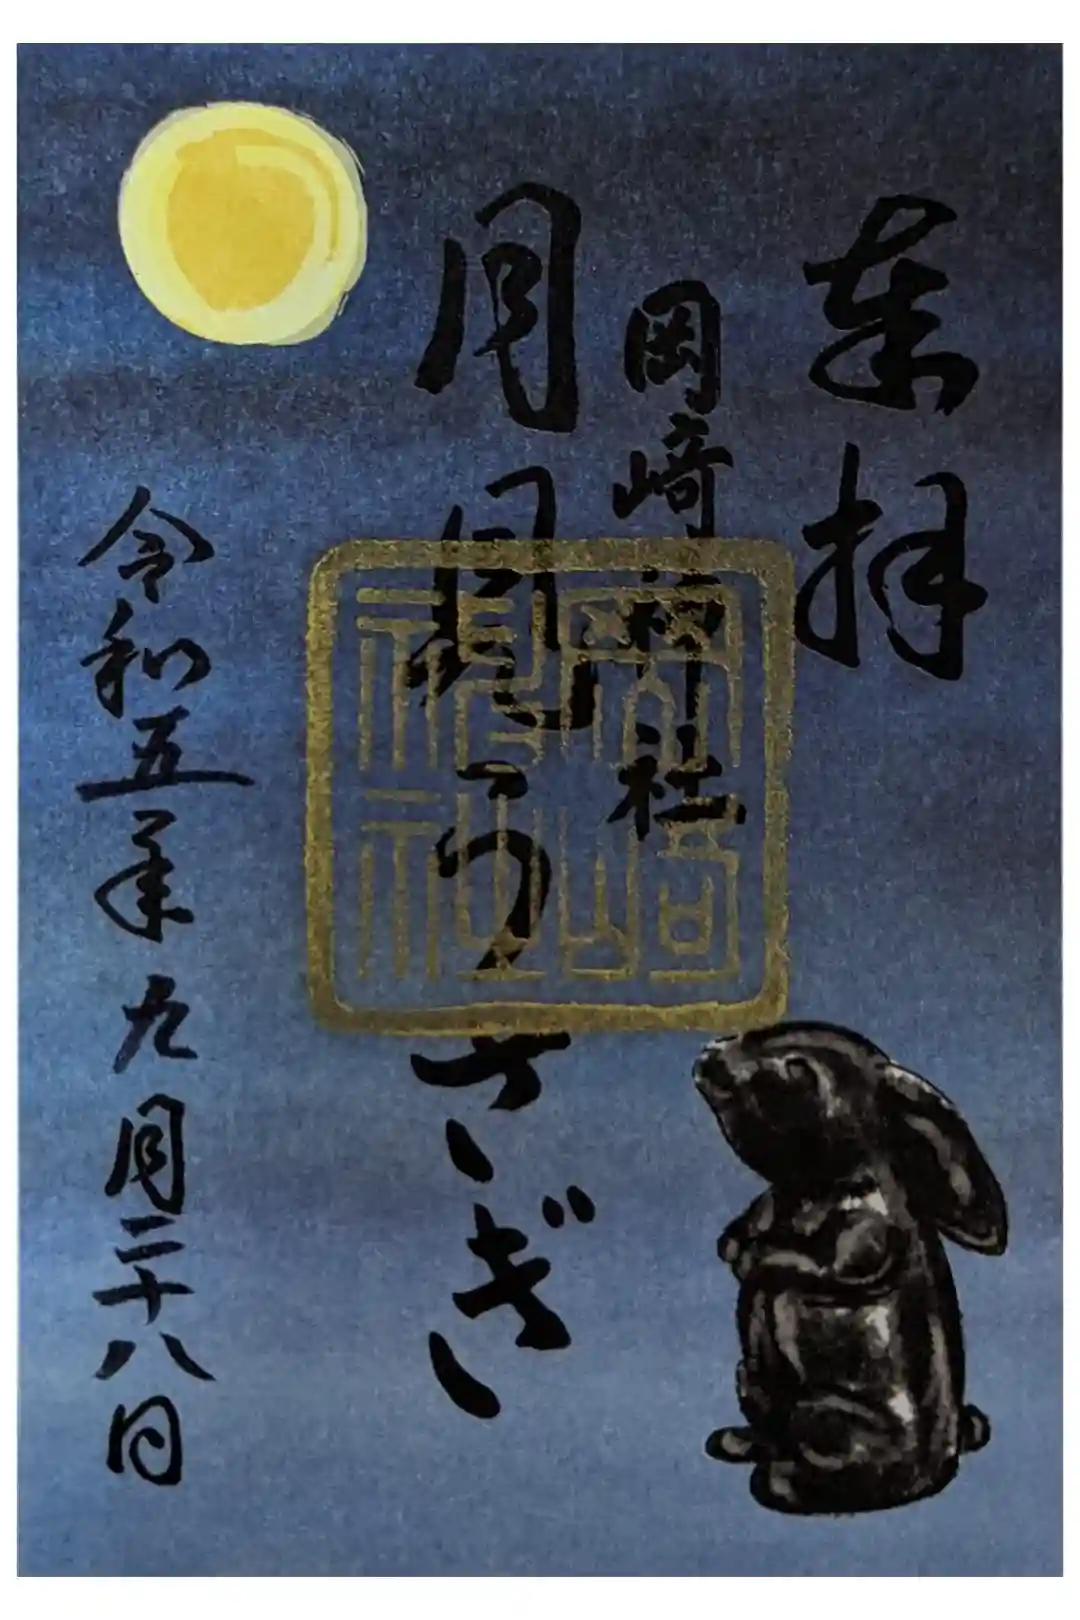 奉拝
岡崎神社
月見うさぎ
令和五年九月二十八日
岡崎
神社